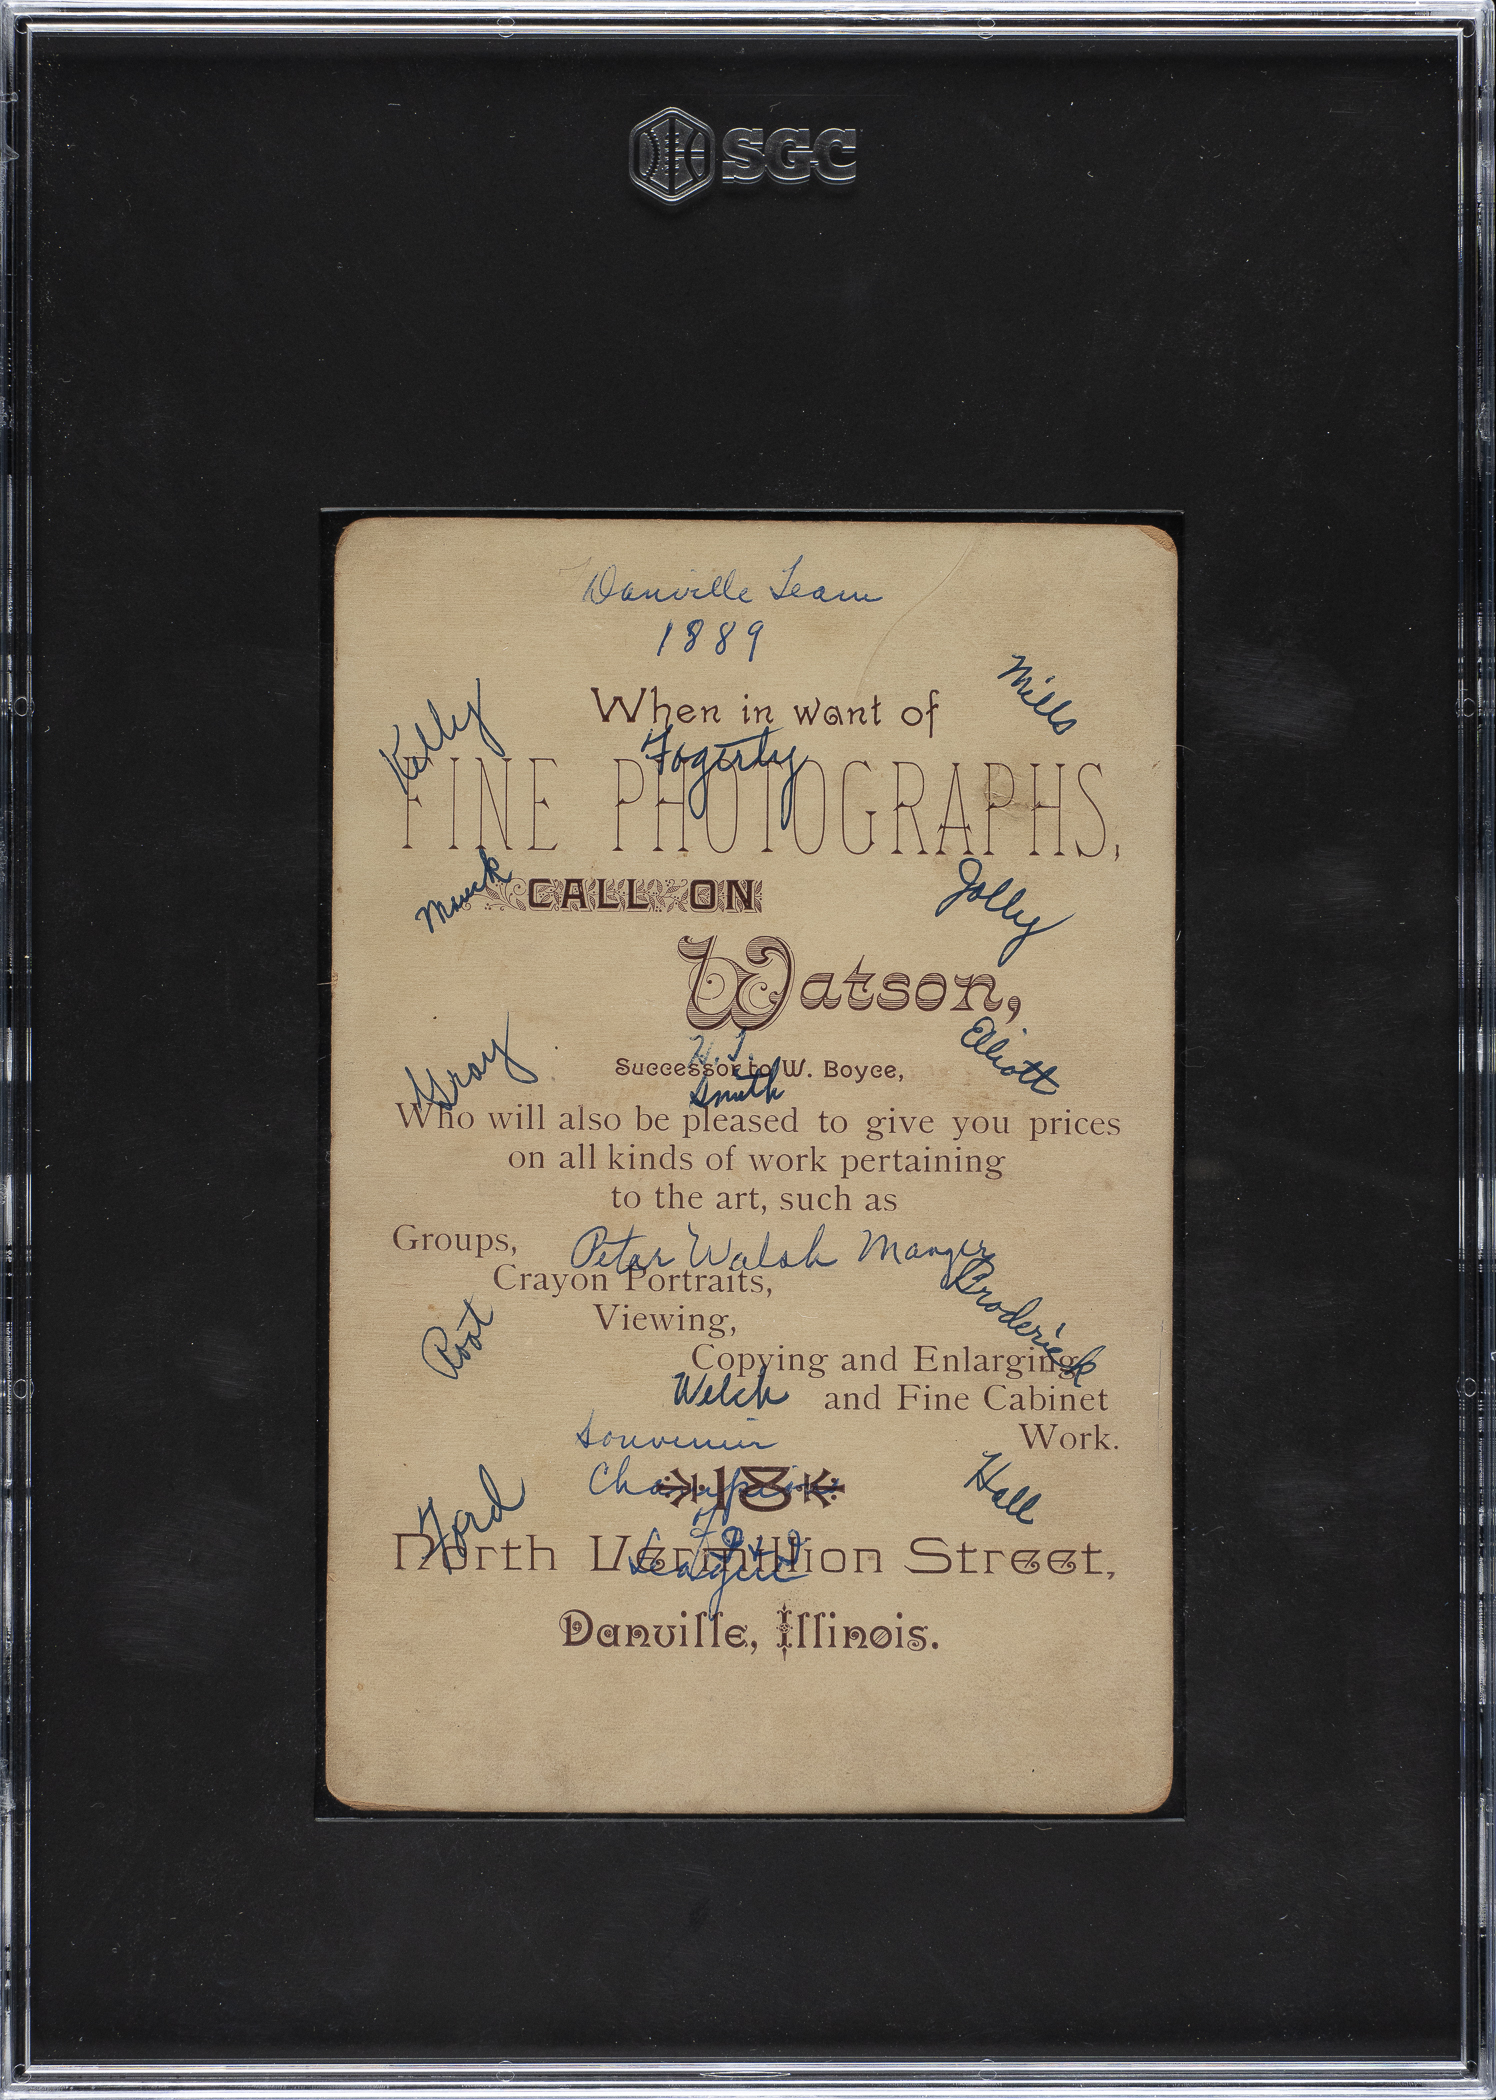 SGC
Danville Team
1889
Mills
Kelly
When in want of
Fogerty
FINE PHOTOGRAPHS,
Mauck
CALL ON
Jolly
Watson,
Elliott
Gray
H. T.
Successor to W. Boyce,
Smith
Who will also be pleased to give you prices
on all kinds of work pertaining
to the art, such as
Groups,
Peter Walsh Manger
Crayon Portraits,
Broderick
Root
Viewing,
Copying and Enlarging
Welch
and Fine Cabinet
Souvenir
Work.
Champions
18
Hall
of
Ford
North Vermillion Street,
League
Danville, Illinois.